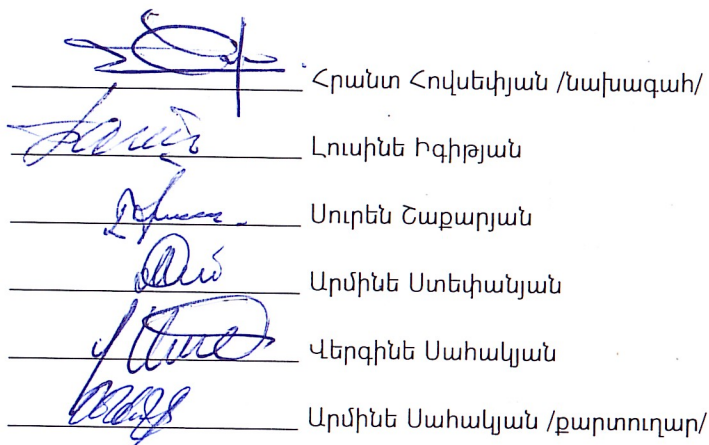 Հրանտ Հովսեփյան /նախագահ/
Լուսինե Իգիթյան
Սուրեն Շաքարյան
Արմինե Ստեփանյան
Վերգինե Սահակյան
Արմինե Սահակյան /քարտուղար/